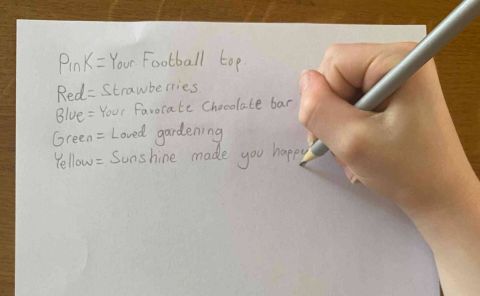 Pink = Your Football top.
Red = Strawberries
Blue = Your Favorate Chocolate bar
Green = Loved gardening
Yellow = Sunshine made you happy